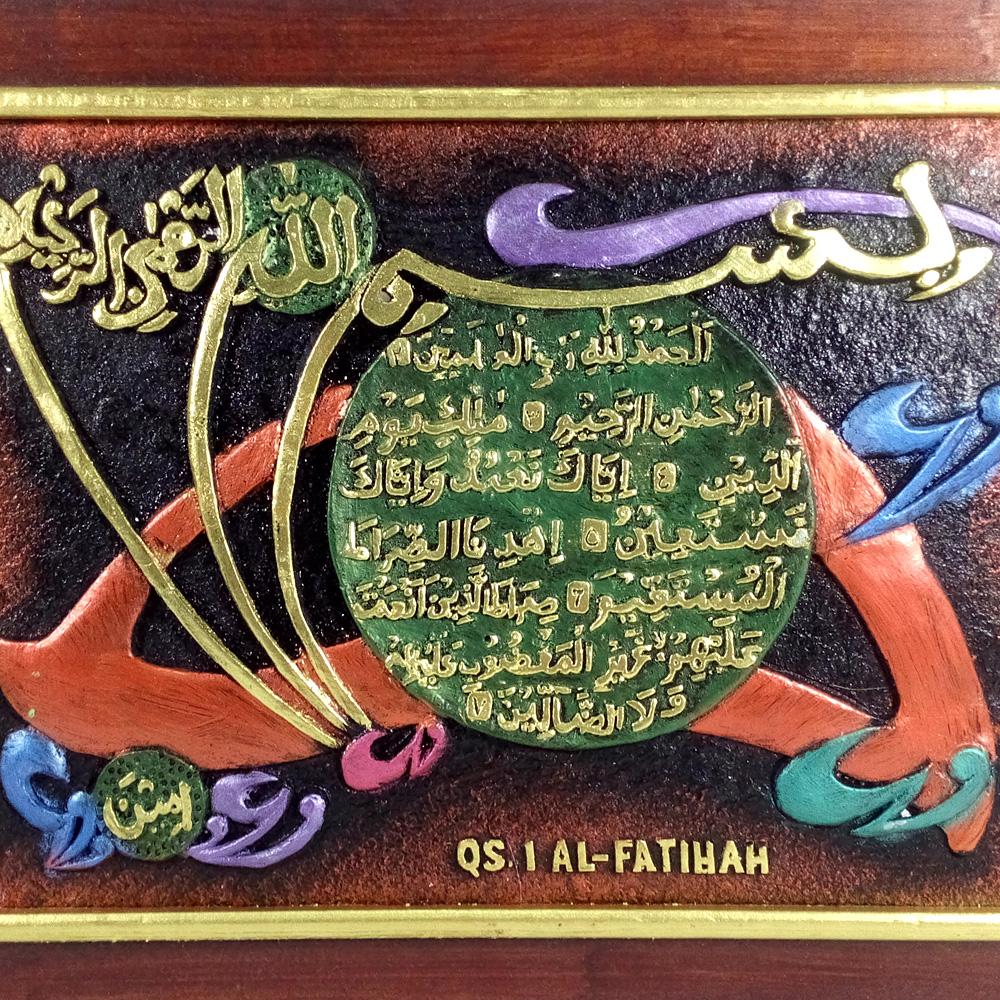 بسم الله الرحمن الرحيم
اَلْحَمْدُ لِلّٰهِ رَبِّ الْعٰلَمِيْنَ ٢
الرَّحْمٰنِ الرَّحِيْمِ ٣ مٰلِكِ يَوْمِ
الدِّيْنِ ٤ اِيَّاكَ نَعْبُدُ وَاِيَّاكَ
نَسْتَعِيْنُ ٥ اِهْدِنَا الصِّرَاطَ
الْمُسْتَقِيْمَ ٦ صِرَاطَ الَّذِيْنَ اَنْعَمْتَ
عَلَيْهِمْ غَيْرِ الْمَغْضُوْبِ عَلَيْهِمْ
وَلَا الضَّالِّيْنَ ٧
امين
QS. 1 AL-FATIHAH